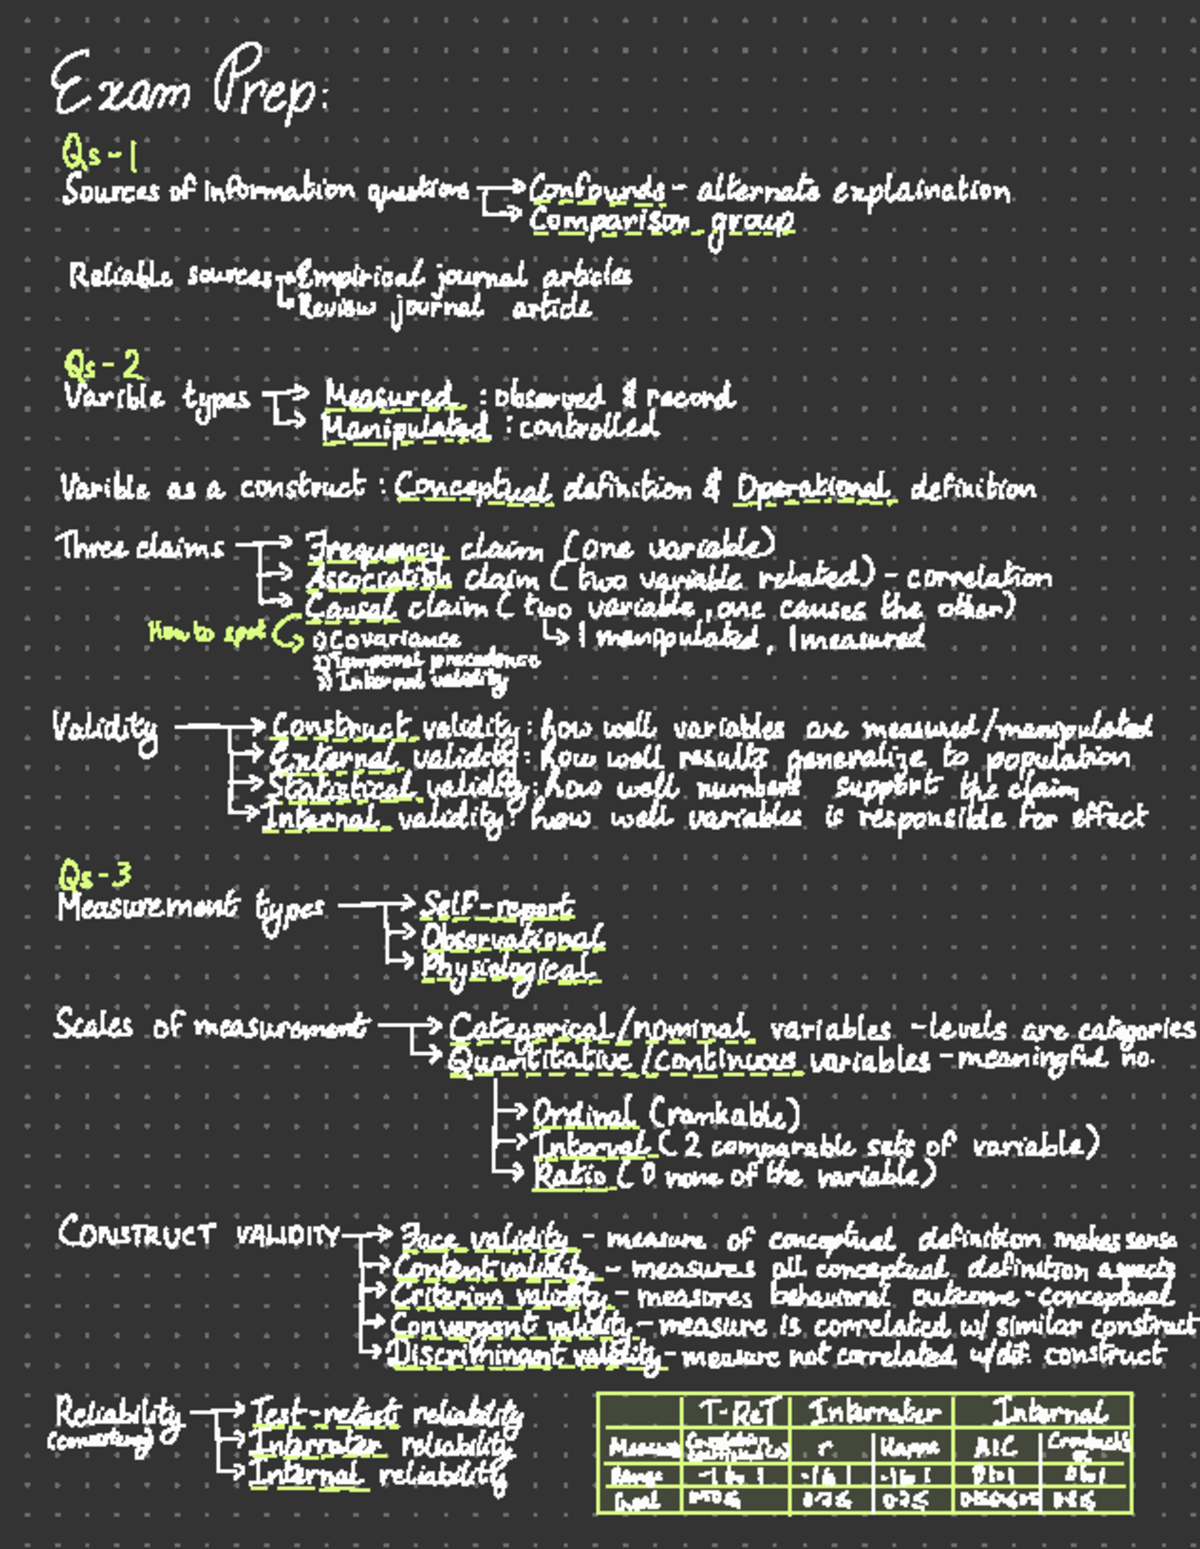 Exam Prep:
Qs-1
Sources of information questions → Confounds - alternate explaination
→ Comparison group
Reliable sources → Empirical journal articles
→ Review journal article
Qs-2
Varible types → Measured : observed & record
→ Manipulated : controlled
Varible as a construct : Conceptual definition & Operational definition
Three claims → Frequency claim (one variable)
→ Association claim (two variable related) - correlation
→ Causal claim (two variable, one causes the other)
How to spot 1) Covariance ↳ 1 manipulated, 1 measured
2) Temporal precedence
3) Internal validity
Validity → Construct validity: how well variables are measured/manipulated
→ External validity: how well results generalize to population
→ Statistical validity: how well numbers support the claim
→ Internal validity: how well variables is responsible for effect
Qs-3
Measurement types → Self-report
→ Observational
→ Physiological
Scales of measurement → Categorical/nominal variables - levels are categories
→ Quantitative/Continuous variables - meaningful no.
→ Ordinal (rankable)
→ Interval (2 comparable sets of variable)
→ Ratio (0 none of the variable)
CONSTRUCT VALIDITY → Face validity - measure of conceptual definition makes sense
→ Content validity - measures all conceptual definition aspects
→ Criterion validity - measures behavioral outcome - conceptual
→ Convergent validity - measure is correlated w/ similar construct
→ Discriminant validity - measure not correlated w/ dif. construct
Reliability → Test-retest reliability
(consistency) → Interrater reliability
→ Internal reliability
T-ReT Interrater Internal
Measure r Kappa AIC Cronbach's
Range -1 to 1 -1 to 1 -1 to 1 0 to 1 0 to 1
Goal